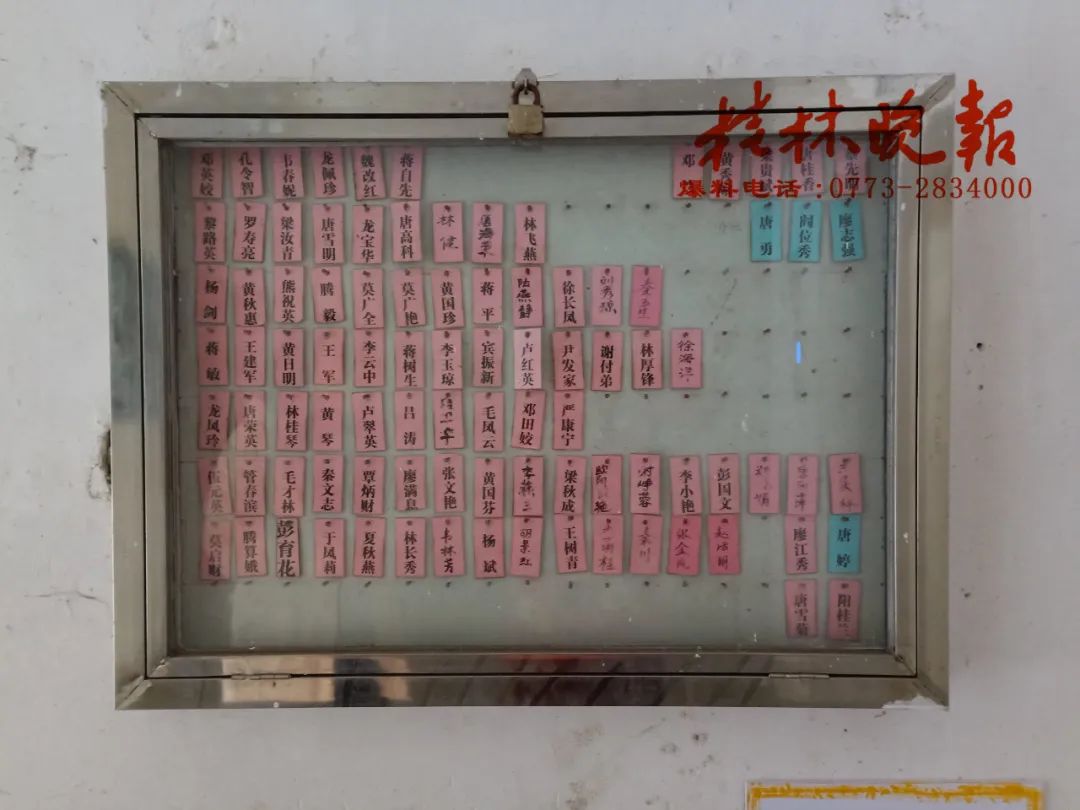 桂林晚报
爆料电话:0773-2834000
邓英姣 孔令智 韦春妮 龙佩珍 魏改红 蒋自先 邓
黎路英 罗寿亮 梁汝青 唐雪明 龙宝华 唐高科 林健 林飞燕 唐勇 阎位秀 廖志强
杨剑 黄秋惠 熊祝英 腾毅 莫广全 莫广艳 黄国珍 蒋平 陆燕静 徐长凤 刘秀琼
蒋敏 王建军 黄日明 王军 李云中 蒋树生 李玉琼 宾振新 卢红英 尹发家 谢付弟 林厚锋 徐海洋
龙凤玲 唐荣英 林桂琴 黄琴 卢翠英 吕涛 毛凤云 邓田姣 严康宁
伍元英 管春滨 毛才林 秦文志 覃炳财 廖满息 张文艳 黄国芬 梁秋成 李小艳 彭国文
莫启财 腾算娥 彭育花 于凤莉 夏秋燕 林长秀 韦林芳 杨斌 王树青 廖江秀 唐婷
唐雪菊 阳桂